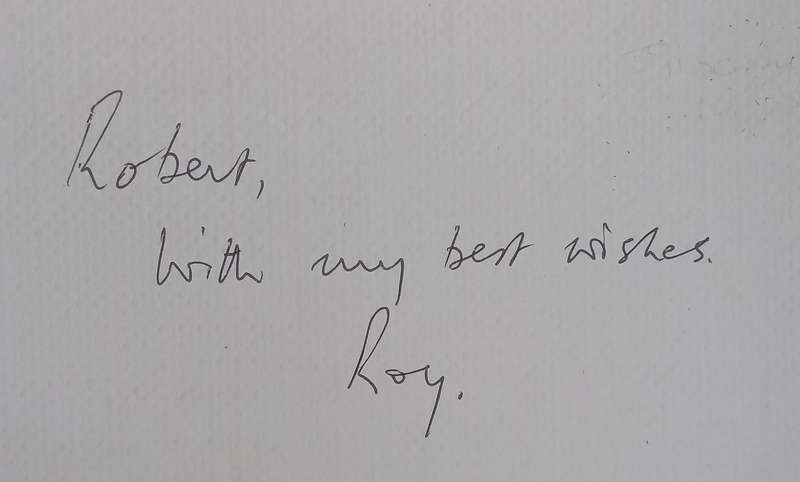 Robert,
With my best wishes.
Roy.